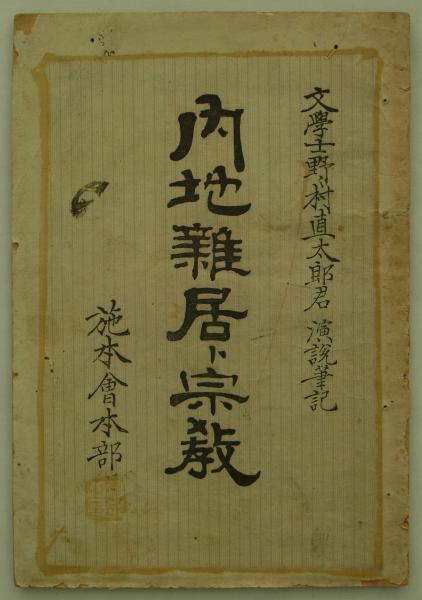 文學士野々村直太郎君 演説筆記
内地雜居ト宗教
施本會本部